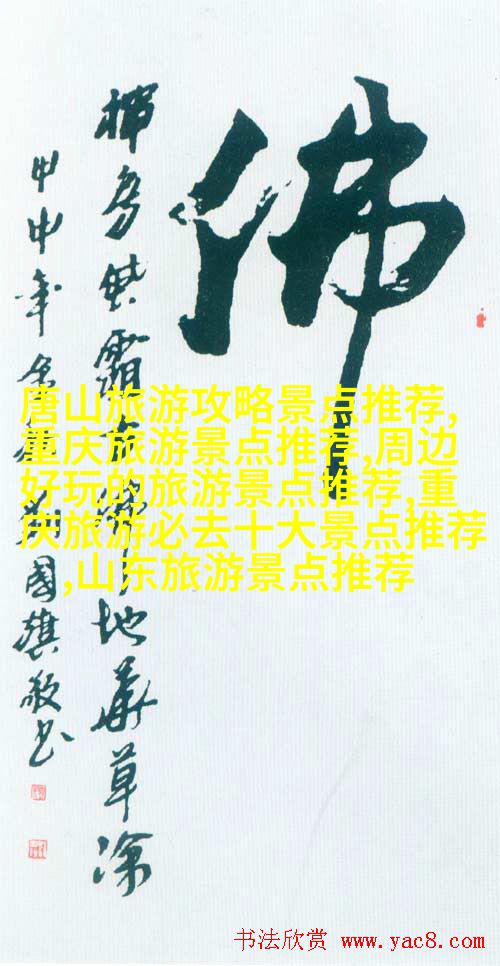 佛
霜 地華草
甲申年 國旗敬书
唐山旅游攻略景点推荐,
重庆旅游景点推荐,周边
好玩的旅游景点推荐,重
庆旅游必去十大景点推荐
,山东旅游景点推荐
书法欣赏 www.yac8.com